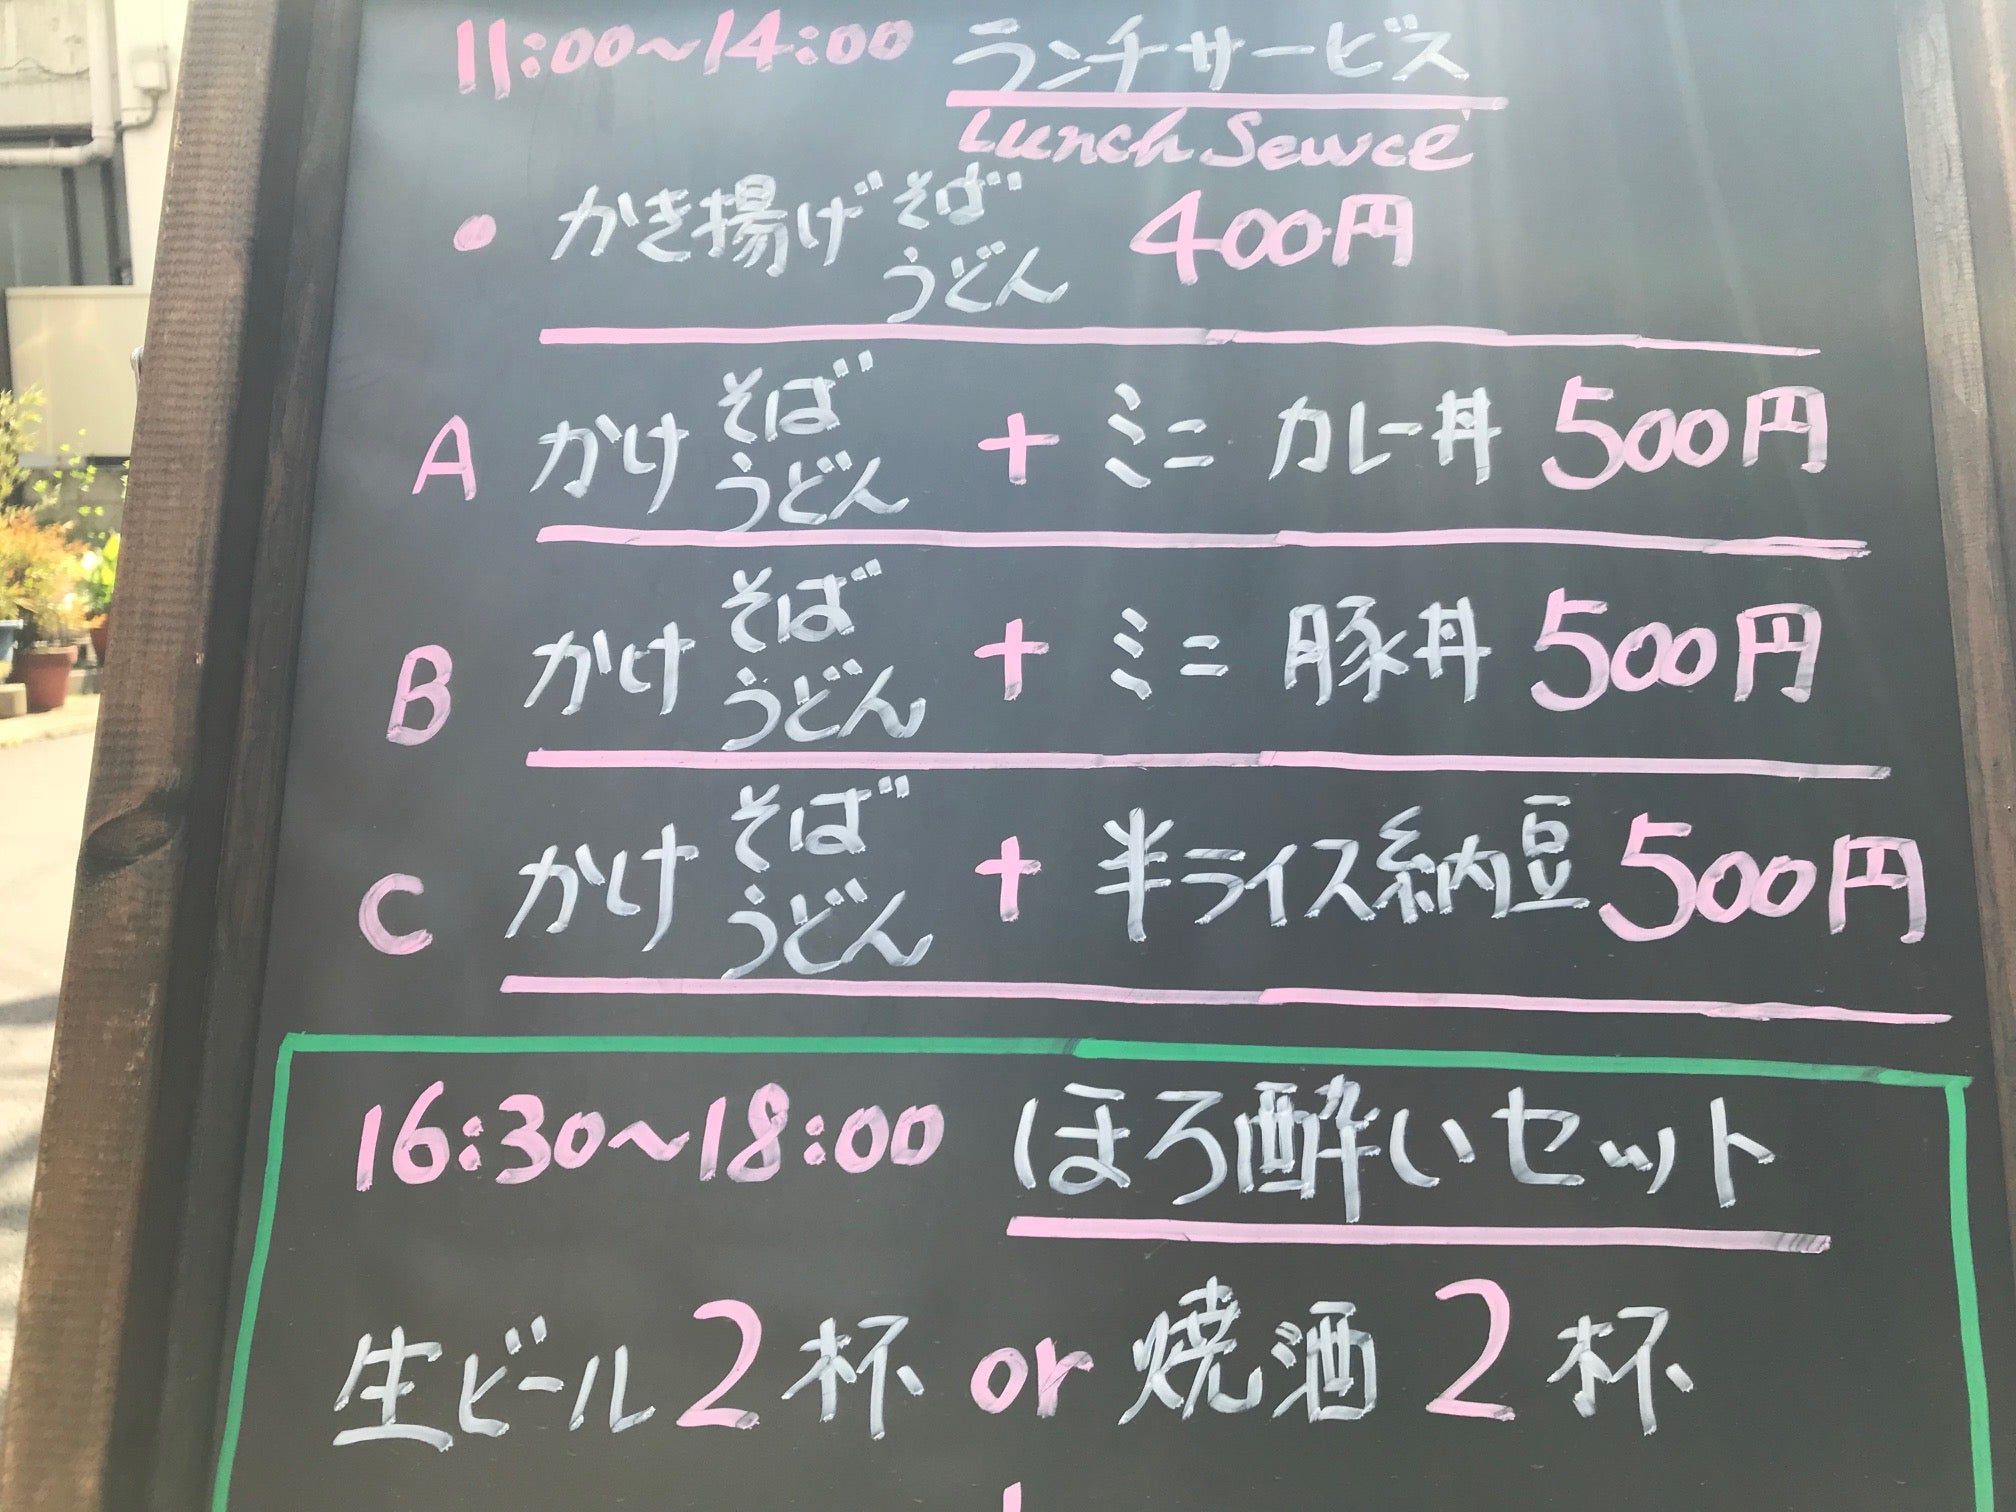 11:00〜14:00 ランチサービス
Lunch Service
• かき揚げ そば うどん 400円
A かけ そば うどん + ミニ カレー丼 500円
B かけ そば うどん + ミニ 豚丼 500円
C かけ そば うどん + 半ライス納豆 500円
16:30〜18:00 ほろ酔いセット
生ビール2杯 or 焼酒2杯